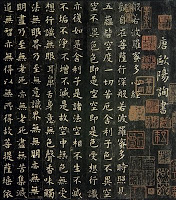 唐歐陽詢書
般若波羅蜜多心經
觀自在菩薩行深般若波羅蜜多時照見
五蘊皆空度一切苦厄舍利子色不異空
空不異色色即是空空即是色受想行識
亦復如是舍利子是諸法空相不生不滅
不垢不淨不增不減是故空中無色無受
想行識無眼耳鼻舌身意無色聲香味觸
法無眼界乃至無意識界無無明亦無無
明盡乃至無老死亦無老死盡無苦集滅
道無智亦無得以無所得故菩提薩埵依